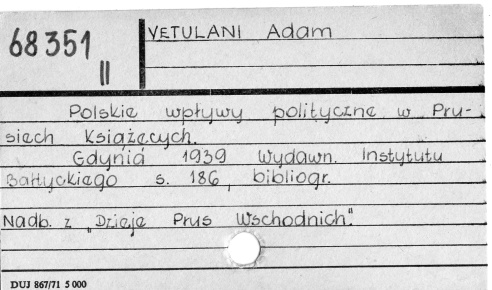 68351
II
VETULANI Adam
Polskie wpływy polityczne w Pru-
siech Książęcych.
Gdynia 1939 Wydawn. Instytutu
Bałtyckiego s. 186, bibliogr.
Nadb. z „Dzieje Prus Wschodnich".
DUJ 867/71 5 000